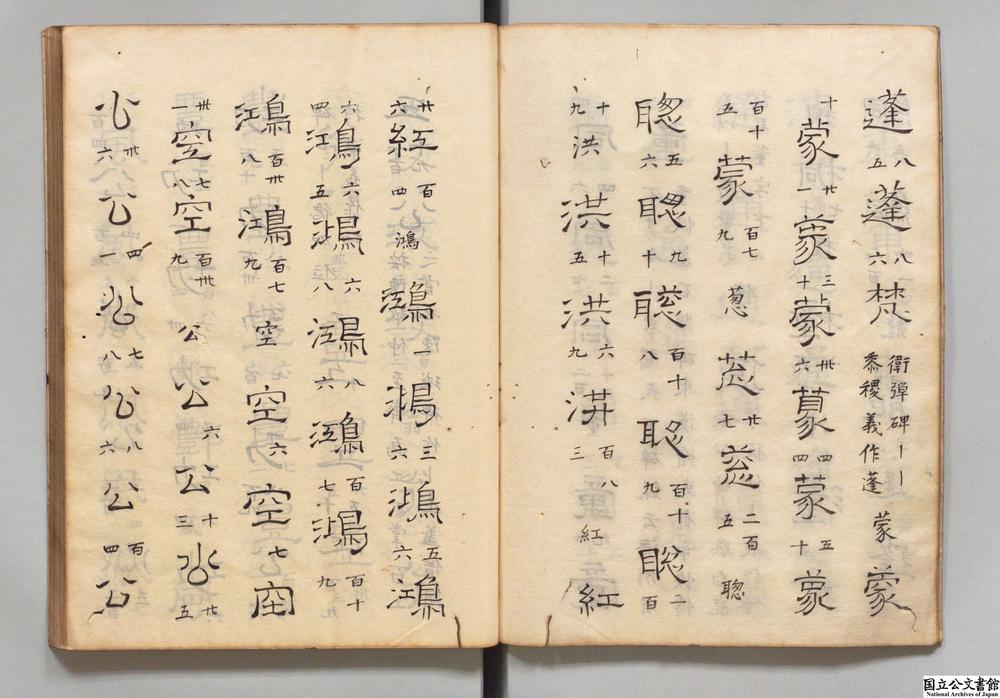 蓬 八五 蓬 八六 梵 衛彈碑ーー黍稷義作蓬 蒙 蒙
十 蒙 廿一 蒙 三十 蒙 卅六 蒙 四四 蒙 五十 蒙
百十五 蒙 百七九 葱 葱 廿七 葱 二百五 聰
聰 五六 聰 九十 聰 百十八 聰 百十九 聰 百
十九 洪 洪 十五 洪 六九 洪 百八三 紅 紅
廿六 紅 百四 鴻 鴻 一 鴻 三六 鴻 五六 鴻
鴻 六五 鴻 六八 鴻 八六 鴻 七 鴻 百十九
鴻 百卅八 鴻 百七九 空 空 六 空 七 空
卅一 空 七八 空 百卅九 公 公 六 公 十三 公 廿五
公 卅六 公 四一 公 七八 公 八六 公 百四 公
國立公文書館
National Archives of Japan